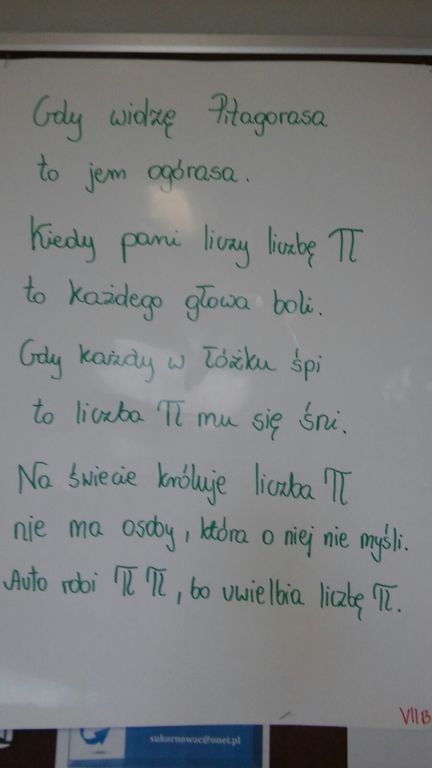 Gdy widzę Pitagorasa
to jem ogórasa.
Kiedy pani liczy liczbę π
to każdego głowa boli.
Gdy każdy w łóżku śpi
to liczba π mu się śni.
Na świecie króluje liczba π
nie ma osoby, która o niej nie myśli.
Auto robi π π, bo uwielbia liczbę π.
VII B
sukornowac@onet.pl